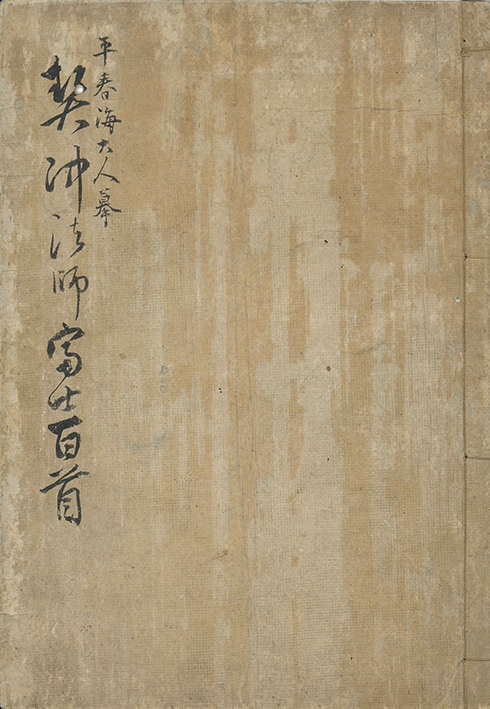 平春海大人摹
契沖法師富士百首